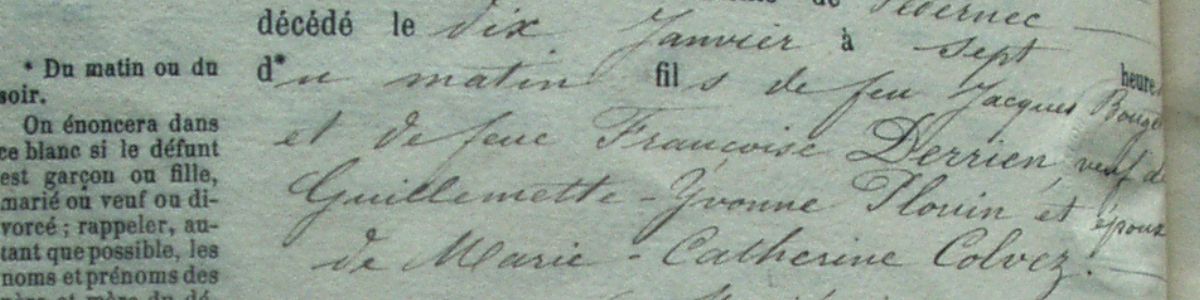 de Plouernec
décédé le dix Janvier à sept heures
du matin fils de feu Jacques
et de feue Françoise Derrien, veuf de
Guillemette-Yvonne Plouin et époux
de Marie-Catherine Colvez.
* Du matin ou du
soir.
On énoncera dans
ce blanc si le défunt
est garçon ou fille,
marié où veuf ou di-
vorcé ; rappeler, au-
tant que possible, les
noms et prénoms des